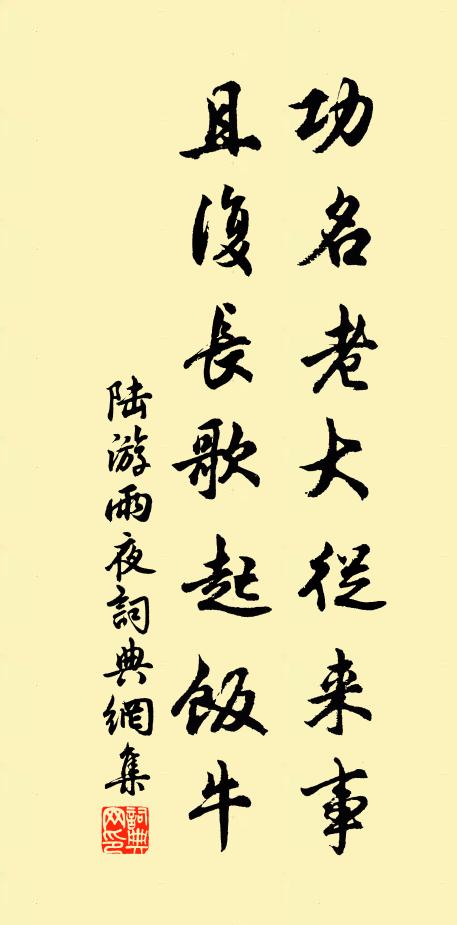 功名老大從来事
且復長歌起飯牛
陆游雨夜詞典網集
詞典網印